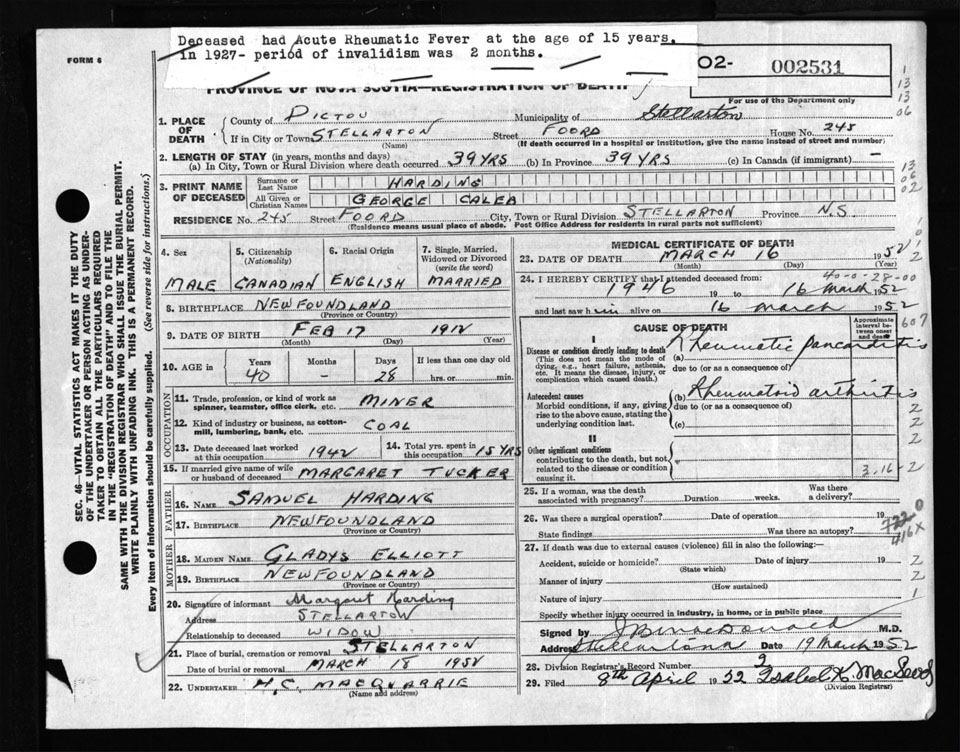 Deceased had Acute Rheumatic Fever at the age of 15 years.
in 1927- period of invalidism was 2 months.
FORM 6
02- 002531
PROVINCE OF NOVA SCOTIA—REGISTRATION OF DEATH
For use of the Department only
1. PLACE OF DEATH
County of PICTOU Municipality of Stellarton
If in City or Town STELLARTON Street FOORD House No. 245
(Name) (If death occurred in a hospital or institution, give the name instead of street and number)
2. LENGTH OF STAY (in years, months and days)
(a) In City, Town or Rural Division where death occurred 39 YRS (b) In Province 39 YRS (c) In Canada (if immigrant) —
3. PRINT NAME OF DECEASED
Surname or Last Name HARDING
All Given or Christian Names GEORGE CALEB
RESIDENCE No. 245 Street FOORD City, Town or Rural Division STELLARTON Province N.S.
(Residence means usual place of abode. Post Office Address for residents in rural parts not sufficient)
4. Sex
MALE
5. Citizenship (Nationality)
CANADIAN
6. Racial Origin
ENGLISH
7. Single, Married, Widowed or Divorced (write the word)
MARRIED
8. BIRTHPLACE NEWFOUNDLAND
(Province or Country)
9. DATE OF BIRTH FEB 17 1912
(Month) (Day) (Year)
10. AGE in Years Months Days If less than one day old
40 — 28 hrs. or min.
OCCUPATION
11. Trade, profession, or kind of work as spinner, teamster, office clerk, etc. MINER
12. Kind of industry or business, as cotton-mill, lumbering, bank, etc. COAL
13. Date deceased last worked at this occupation 1942
14. Total yrs. spent in this occupation 15 YRS
15. If married give name of wife or husband of deceased MARGARET TUCKER
FATHER
16. NAME SAMUEL HARDING
17. BIRTHPLACE NEWFOUNDLAND
(Province or Country)
MOTHER
18. MAIDEN NAME GLADYS ELLIOTT
19. BIRTHPLACE NEWFOUNDLAND
(Province or Country)
20. Signature of informant Margaret Harding
Address STELLARTON
Relationship to deceased WIDOW
21. Place of burial, cremation or removal STELLARTON
Date of burial or removal MARCH 18 1952
22. UNDERTAKER H.C. MACQUARRIE
(Name and address)
MEDICAL CERTIFICATE OF DEATH
23. DATE OF DEATH MARCH 16 1952
(Month) (Day) (Year)
40-0-28-00
24. I HEREBY CERTIFY that I attended deceased from:
1946 19 to 16 March 1952
and last saw him alive on 16 March 1952
CAUSE OF DEATH
Approximate interval between onset and death
607
I
Disease or condition directly leading to death
(This does not mean the mode of dying, e.g., heart failure, asthenia, etc. It means the disease, injury, or complication which caused death.)
(a) Rheumatic pancarditis
due to (or as a consequence of)
Antecedent causes
Morbid conditions, if any, giving rise to the above cause, stating the underlying condition last.
(b) Rheumatoid arthritis
due to (or as a consequence of)
(c)
II
Other significant conditions
contributing to the death, but not related to the disease or condition causing it.
3.16-2
25. If a woman, was the death associated with pregnancy? Duration weeks. Was there a delivery?
26. Was there a surgical operation? Date of operation 19
State findings Was there an autopsy?
416X
27. If death was due to external causes (violence) fill in also the following:—
Accident, suicide or homicide? Date of injury 19
(State which)
Manner of injury
(How sustained)
Nature of injury
Specify whether injury occurred in industry, in home, or in public place
Signed by J B MacDonald M.D.
Address Stellarton Date 19 March 1952
28. Division Registrar's Record Number 9
29. Filed 8th April 1952 Isabel K. MacLeod
(Division Registrar)
SEC. 46—VITAL STATISTICS ACT MAKES IT THE DUTY
OF THE UNDERTAKER OR PERSON ACTING AS UNDERTAKER TO OBTAIN ALL THE PARTICULARS REQUIRED
IN THE "REGISTRATION OF DEATH" AND TO FILE THE
SAME WITH THE DIVISION REGISTRAR WHO SHALL ISSUE THE BURIAL PERMIT.
WRITE PLAINLY WITH UNFADING INK. THIS IS A PERMANENT RECORD.
Every item of information should be carefully supplied. (See reverse side for instructions.)